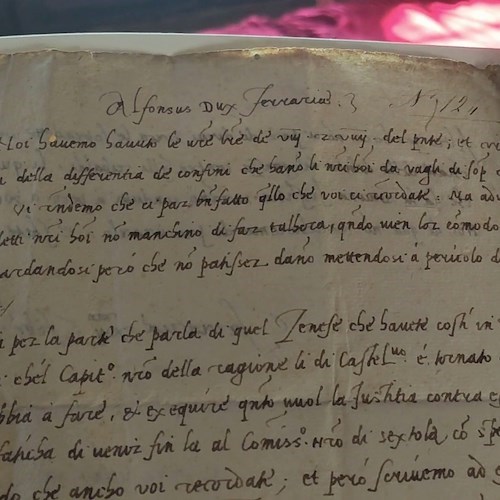 Alfonsus Dux Ferrariæ 3 N 3/24
Noi havemo havuto le vre lre de viij et viiij del pnte, et
della differentia de confini che hano li nri hoi da vagli di sop
Vi rndemo che ci par bn fatto qllo che voi ci ricordate. Ma
detti nri hoi no manchino di far talhora, qndo vien lor comodo
guardandosi però che no patisser dano mettendosi à pericolo d
per la parte che parla di quel Zenese che havete costi in
chel Capit.o nro della ragione lì di Castel.uo è tornato
abbia à fare, & exequire qnto vuol la Justitia contra
faticha di venir fin la al Comiss.o nro di sextola, cõ
do che ancho voi recordate; et però scrivemo ad